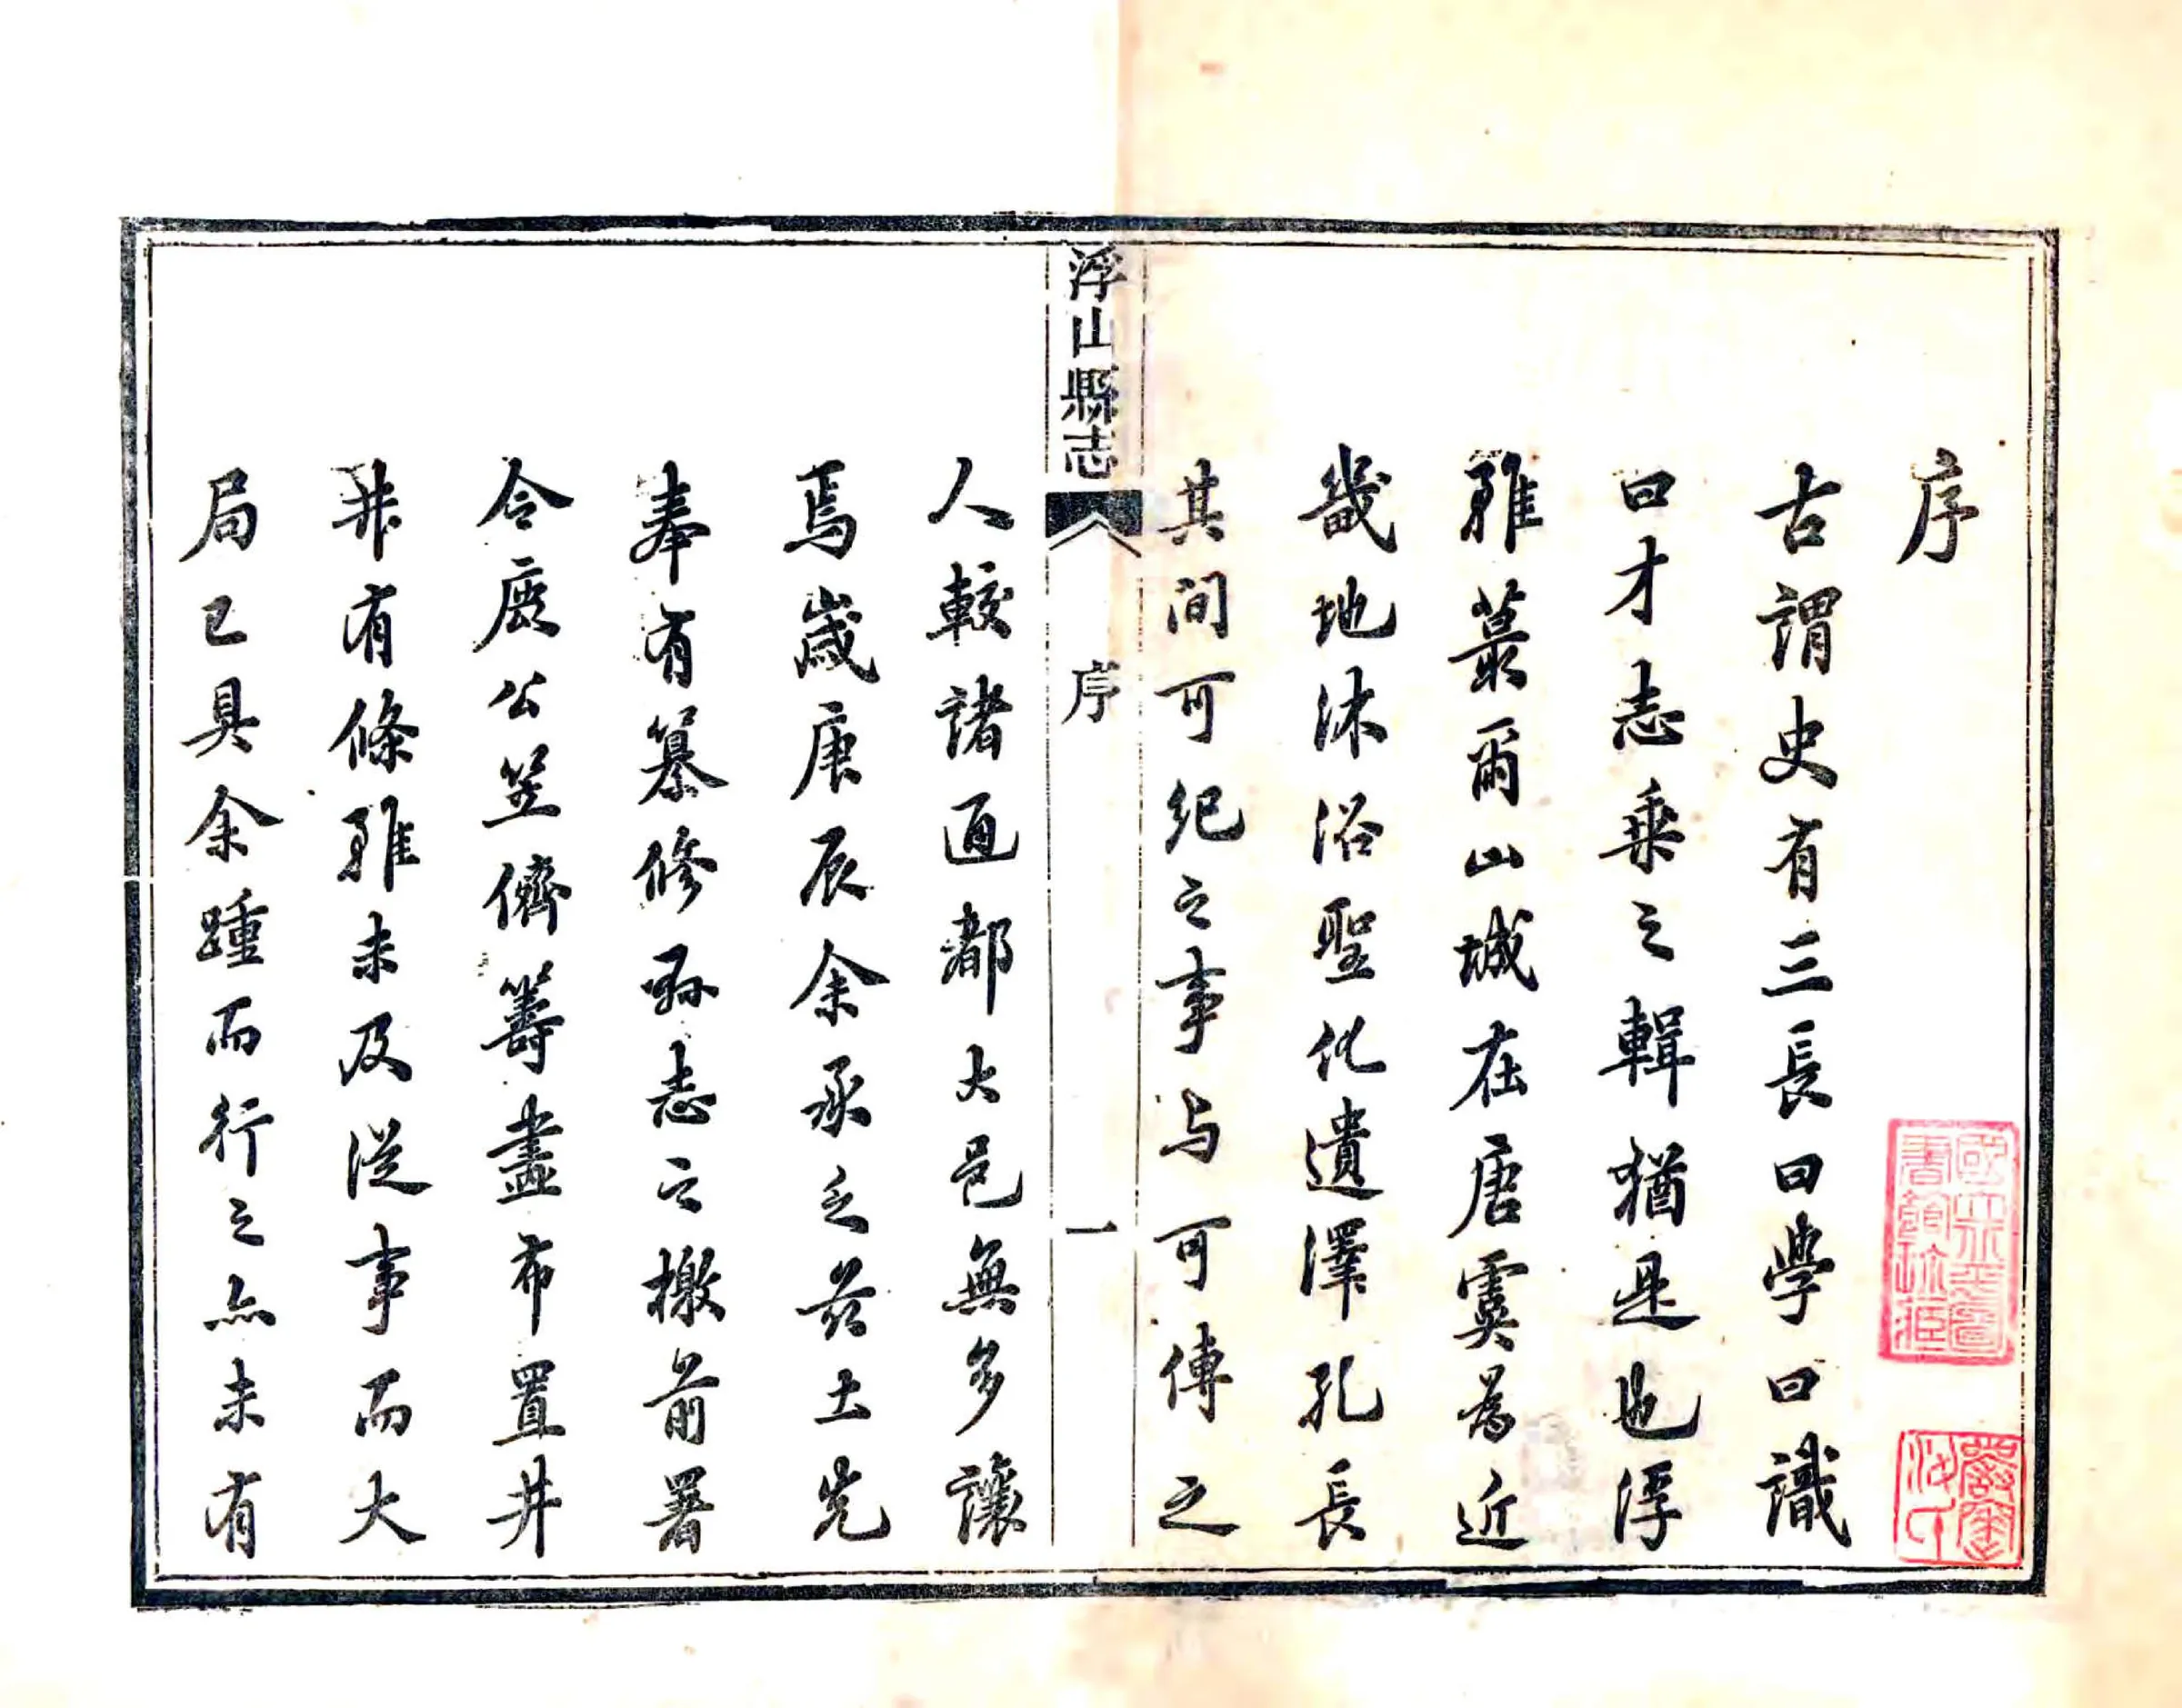 序
古謂史有三長曰學曰識
曰才志乘之輯猶是也浮
雖蕞爾山城在唐虞為近
畿地沐浴聖化遺澤孔長
其间可紀之事与可傳之
浮山縣志
序
一
人較諸通都大邑無多讓
焉歲庚辰余承乏茲土先
奉有纂修縣志之檄前署
令鹿公笠儕籌畫布置井
井有條雖未及從事而大
局已具余踵而行之亦未有